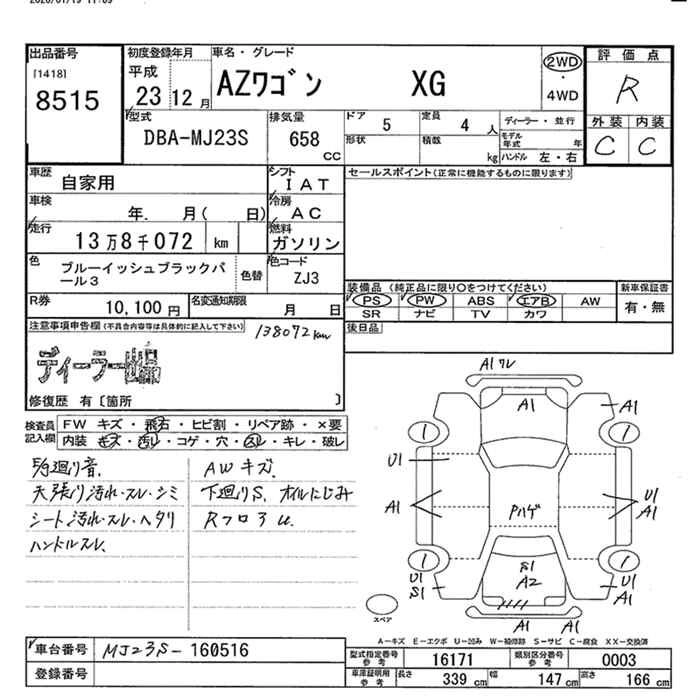 出品番号
[1418]
8515
初度登録年月
平成
23 12 月
車名・グレード
AZワゴン XG
2WD
・
4WD
評価点
R
外装 内装
C C
型式
DBA-MJ23S
排気量
658
CC
ドア
5
定員
4 人
形状
積載
kg
ディーラー・並行
モデル年式 年
ハンドル 左・右
車歴
自家用
シフト
IAT
車検
年. 月( 日)
冷房
AC
走行
13万8千072 km
燃料
ガソリン
色
ブルーイッシュブラックパール3
色替
色コード
ZJ3
R券
10,100 円
名変通知期限
月 日
セールスポイント(正常に機能するものに限ります)
装備品 (純正品に限り○をつけてください)
PS PW ABS エアB AW
SR ナビ TV カワ
新車保証書
有・無
後日品
注意事項申告欄(不具合内容等は具体的に記入して下さい)
138072km
ディーラー出品
修復歴 有〔箇所 〕
検査員記入欄
FW キズ・飛石・ヒビ割・リペア跡・×要
内装 キズ・汚レ・コゲ・穴・スレ・キレ・破レ
天張り汚れ・スレ・シミ
シート汚れ・スレ・ヘタリ
ハンドルスレ.
AWキズ.
下廻りS. オイルにじみ
A1ワレ
A1
A1
1
1
U1
A1
U1
A1
Pハゲ
1
1
S1
A2
U1
S1
U1
A1
A1 A1
スペア
A-キズ E-エクボ U-凹み W-補修跡 S-サビ C-腐食 XX-交換済
車台番号
MJ23S-160516
登録番号
型式指定番号 参考
16171
類別区分番号 参考
0003
車庫証明用 参考
長さ 339 cm
幅 147 cm
高さ 166 cm